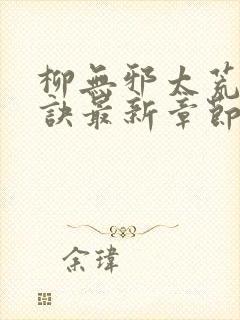 柳無邪太荒
訣最新章節
余瑋